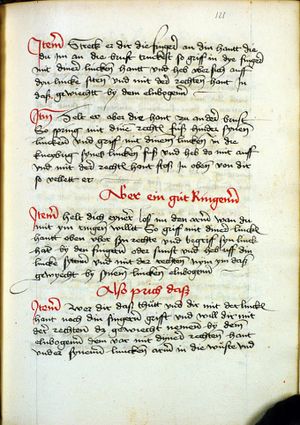 121
Item Streck er dir die finger an der hantt die
du im an die brust truckest so griff in dye finger
mit diner lincken hantt und heb uber sich auff
dyn lincke sitten und mit der rechten hant in
daß gewicht by dem elnbogenn
Item Helt er aber die hant zu an der brust
So spring mit dinē rechtē fuß hinder synen
lincken und griff mit dinem lincken in die
kneybüg synes lincken fuß und heb do mit auff
und mit der rechtē hant stoß in oben von dir
so vellett er
Aber ein gut Ringenn
Item helt dich eyner loß in den armē wan du
mit ym ringen willt So griff mit dinēr lincke
hantt oben uber syn rechte und begriff syn linck
hāt by den fingern oder sunst und heb uff din
lincke sitten und mit der rechten nym ym daß
gewycht by synem lincken elnbogenn
Alß prich daß
Item Wer dir daß thutt und dir mit der lincke
hant noch din fingern grift und will dir mit
der rechten dz gewicht nemen by dem
elnbogenn dem var mit dyner rechten hant
under synemm lincken arm in die wuste und